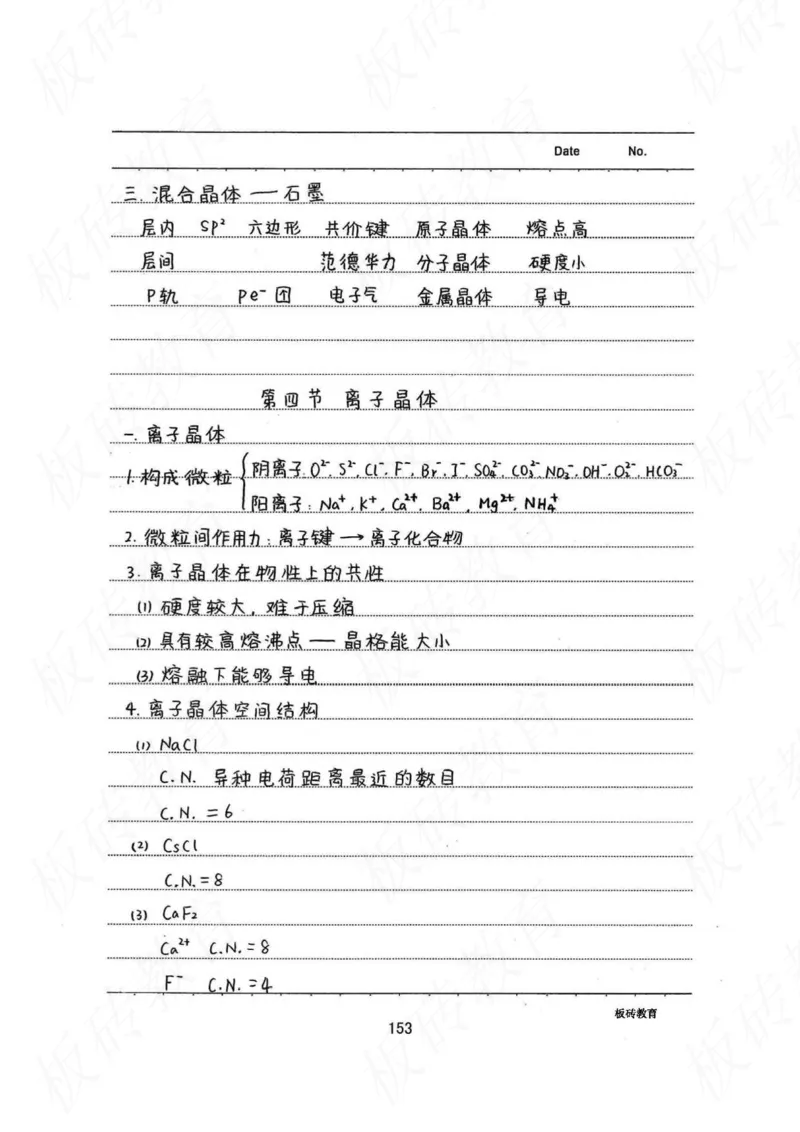 Date No.
三. 混合晶体 — 石墨
层内 sp² 六边形 共价键 原子晶体 熔点高
层间 范德华力 分子晶体 硬度小
P轨 pe⁻团 电子气 金属晶体 导电
第四节 离子晶体
一. 离子晶体
1. 构成微粒 { 阴离子: O²⁻. S²⁻. Cl⁻. F⁻. Br⁻. I⁻. SO₄²⁻. CO₃²⁻. NO₃⁻. OH⁻. O₂²⁻. HCO₃⁻
阳离子: Na⁺, K⁺, Ca²⁺, Ba²⁺, Mg²⁺, NH₄⁺
2. 微粒间作用力: 离子键 → 离子化合物
3. 离子晶体在物性上的共性
(1) 硬度较大, 难于压缩
(2) 具有较高熔沸点 — 晶格能大小
(3) 熔融下能够导电
4. 离子晶体空间结构
(1) NaCl
C.N. 异种电荷距离最近的数目
C.N. = 6
(2) CsCl
C.N. = 8
(3) CaF₂
Ca²⁺ C.N. = 8
F⁻ C.N. = 4
板砖教育
153